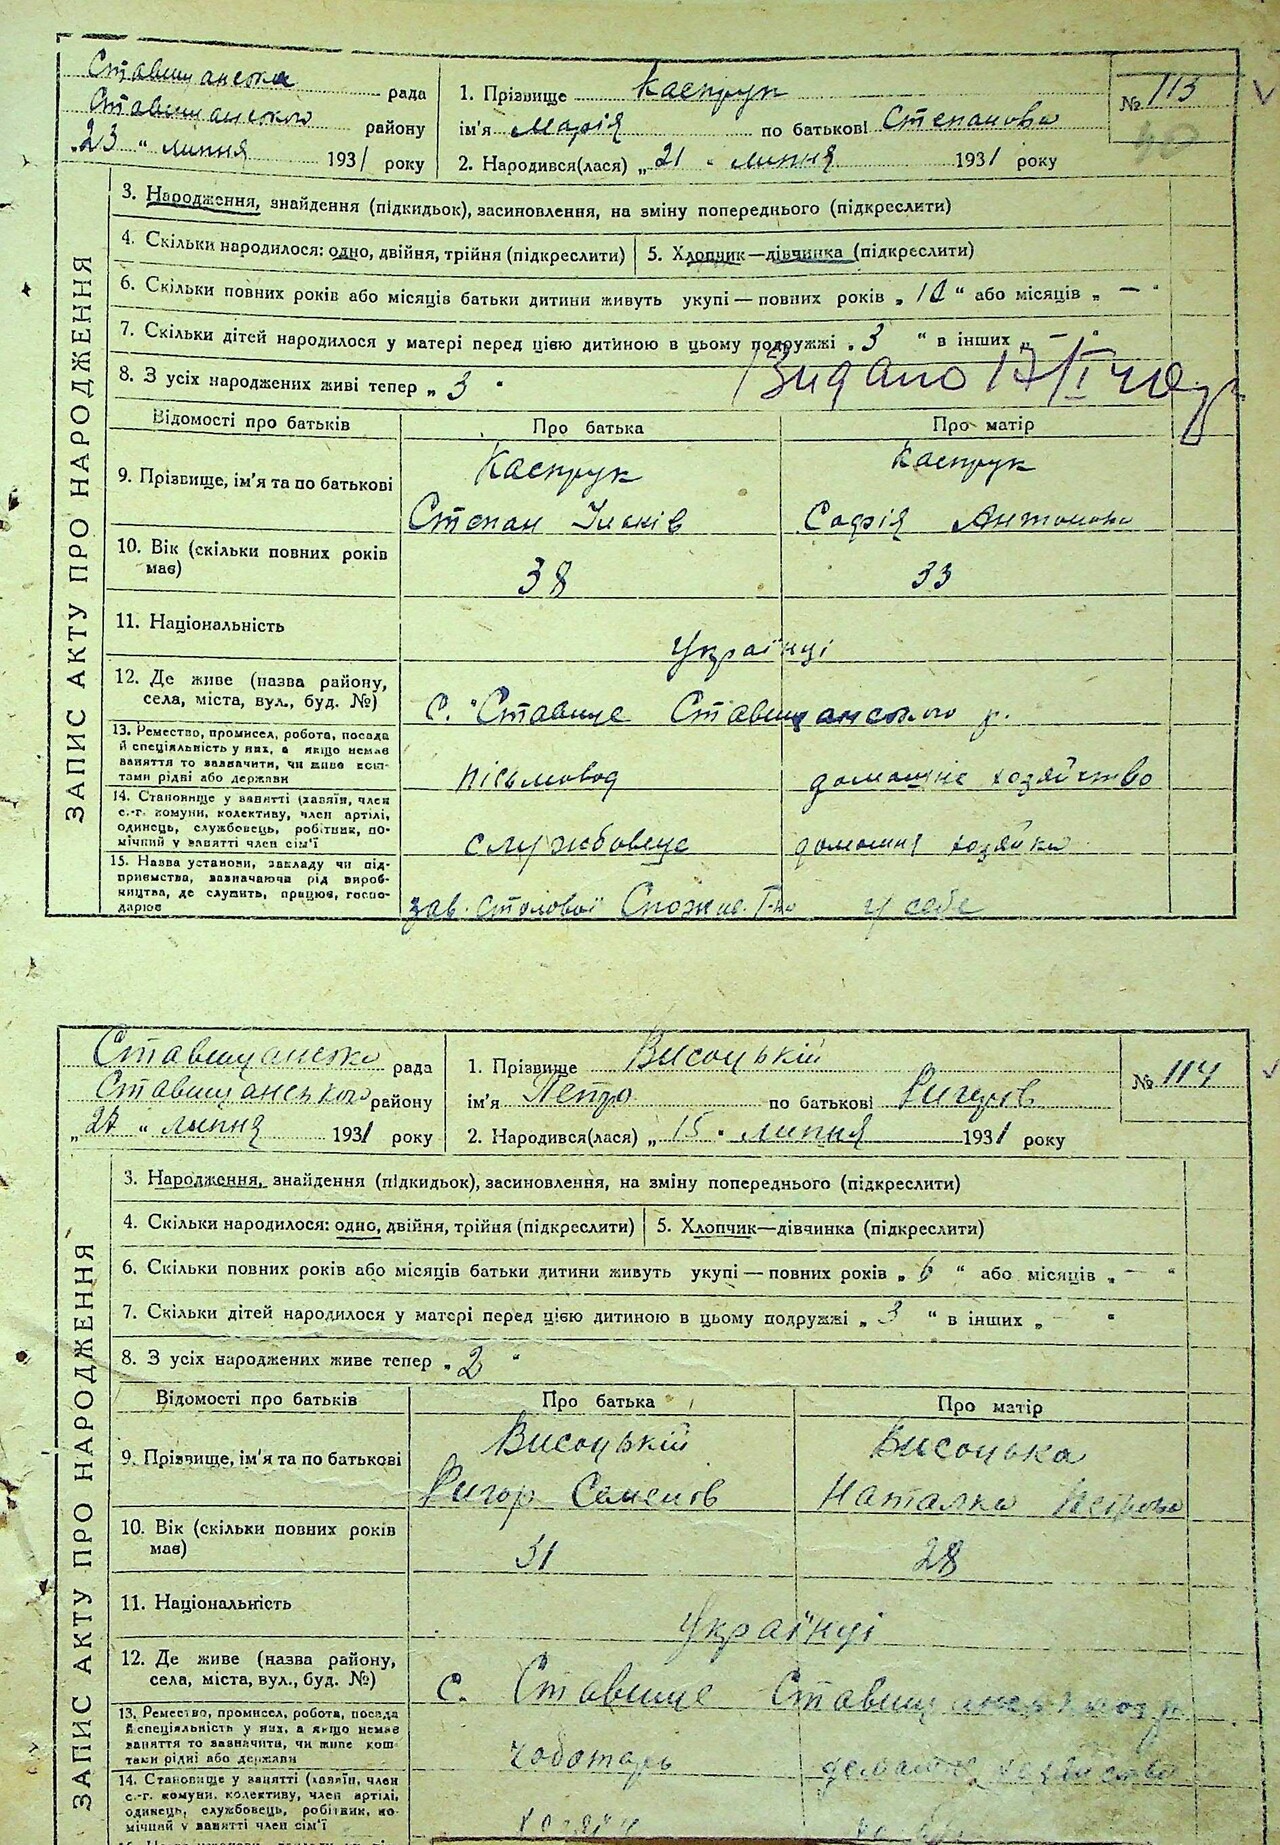 Ставищанська рада
Ставищанського району
„23“ липня 1931 року
1. Прізвище Каспрук
ім'я Марія по батькові Степанова
2. Народився(лася) „21“ липня 1931 року
№ 113
40
ЗАПИС АКТУ ПРО НАРОДЖЕННЯ
3. Народження, знайдення (підкидьок), засиновлення, на зміну попереднього (підкреслити)
4. Скільки народилося: одно, двійня, трійня (підкреслити) 5. Хлопчик—дівчинка (підкреслити)
6. Скільки повних років або місяців батьки дитини живуть укупі — повних років „10“ або місяців „—“
7. Скільки дітей народилося у матері перед цією дитиною в цьому подружжі „3“ в інших „—“
8. З усіх народжених живі тепер „3“
Видано 17/I 40 р
Відомості про батьків Про батька Про матір
Каспрук Каспрук
9. Прізвище, ім'я та по батькові
Степан Ільків Софія Антонова
10. Вік (скільки повних років має) 38 33
11. Національність
Українці
12. Де живе (назва району,
села, міста, вул., буд. №) с. Ставище Ставищанського р.
13. Ремество, промисел, робота, посада
й спеціяльність у них, а якщо немає
заняття то зазначити, чи живе кош-
тами рідні або держави
пісьмовод домашнє хозяйство
14. Становище у занятті (хазяїн, член
с.-г. комуни, колективу, член артілі,
одинець, службовець, робітник, по-
мічний у занятті член сім'ї
службовець домашня хозяйка
15. Назва установи, закладу чи під-
приємства, зазначаючи рід вироб-
ництва, де служить, працює, госпо-
дарює
зав. столової Спожив. Т-ва у себе
Ставищанська рада
Ставищанського району
„27“ липня 1931 року
1. Прізвище Висоцькій
ім'я Петро по батькові Ригоров
2. Народився(лася) „15“ липня 1931 року
№ 114
ЗАПИС АКТУ ПРО НАРОДЖЕННЯ
3. Народження, знайдення (підкидьок), засиновлення, на зміну попереднього (підкреслити)
4. Скільки народилося: одно, двійня, трійня (підкреслити) 5. Хлопчик—дівчинка (підкреслити)
6. Скільки повних років або місяців батьки дитини живуть укупі — повних років „6“ або місяців „—“
7. Скільки дітей народилося у матері перед цією дитиною в цьому подружжі „3“ в інших „—“
8. З усіх народжених живе тепер „2“
Відомості про батьків Про батька Про матір
Висоцькій Висоцька
9. Прізвище, ім'я та по батькові
Ригор Семенов Наталка Петрова
10. Вік (скільки повних років має) 31 28
11. Національність
Українці
12. Де живе (назва району,
села, міста, вул., буд. №) с. Ставище Ставищанського р.
13. Ремество, промисел, робота, посада
й спеціяльність у них, а якщо немає
заняття то зазначити, чи живе кош-
тами рідні або держави
чоботарь домашнє хозяйство
14. Становище у занятті (хазяїн, член
с.-г. комуни, колективу, член артілі,
одинець, службовець, робітник, по-
мічний у занятті член сім'ї
хазяїн